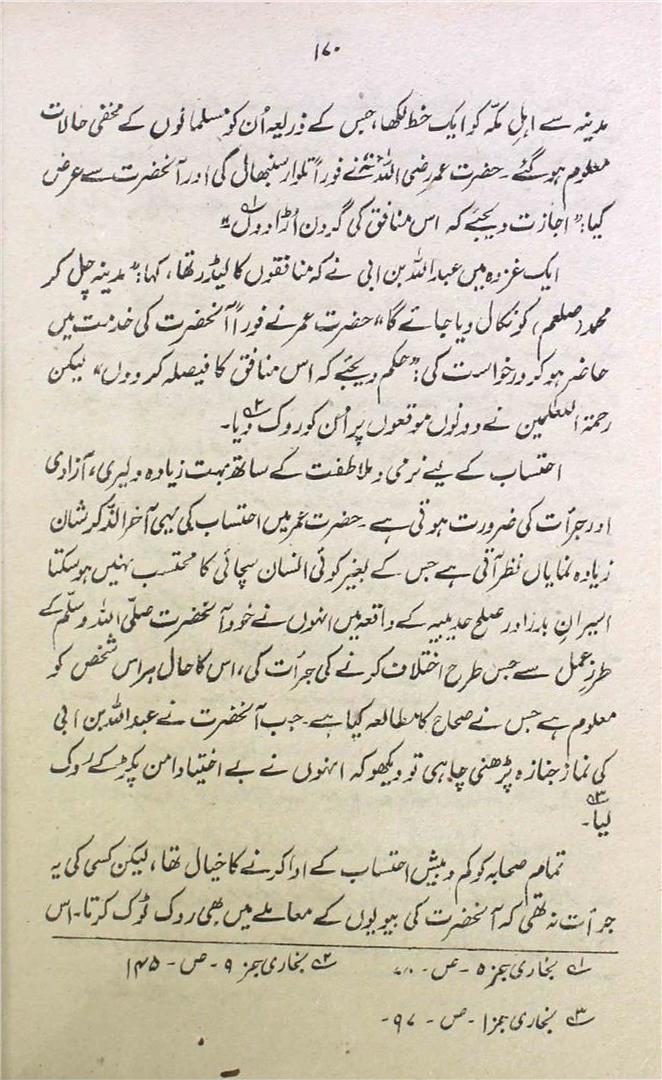 ۱۷۰
مدینہ سے اہلِ مکہ کو ایک خط لکھا، جس کے ذریعہ اُن کو مسلمانوں کے مخفی حالات
معلوم ہو گئے۔ حضرت عمر رضی اللہ عنہ نے فوراً تلوار سنبھال لی اور آنحضرت سے عرض
کیا: "اجازت دیجئے کہ اس منافق کی گردن اُڑا دوں۱؎"
ایک غزوہ میں عبداللہ بن ابی نے کہ منافقوں کا لیڈر تھا، کہا: "مدینہ چل کر
محمد (صلعم) کو نکال دیا جائے گا" حضرت عمر نے فوراً آنحضرت کی خدمت میں
حاضر ہو کر درخواست کی: "حکم دیجئے کہ اس منافق کا فیصلہ کر دوں" لیکن
رحمۃ اللعٰلمین نے دونوں موقعوں پر اُن کو روک دیا۲؎۔
احتساب کے لیے نرمی و ملاطفت کے ساتھ بہت زیادہ دلیری، آزادی
اور جرأت کی ضرورت ہوتی ہے۔ حضرت عمر میں احتساب کی یہی آخر الذکر شان
زیادہ نمایاں نظر آتی ہے جس کے بغیر کوئی انسان سچائی کا محتسب نہیں ہو سکتا
اسیرانِ بدر اور صلح حدیبیہ کے واقعہ میں انہوں نے خود آنحضرت صلی اللہ وسلّم کے
طرزِ عمل سے جس طرح اختلاف کرنے کی جرأت کی، اس کا حال ہر اس شخص کو
معلوم ہے جس نے صحاح کا مطالعہ کیا ہے۔ جب آنحضرت نے عبداللہ بن ابی
کی نماز جنازہ پڑھنی چاہی تو دیکھو کہ انہوں نے بے اختیار دامن پکڑ کے روک
لیا۳؎۔
تمام صحابہ کو کم و بیش احتساب کے ادا کرنے کا خیال تھا، لیکن کسی کی یہ
جرأت نہ تھی کہ آنحضرت کی بیویوں کے معاملے میں بھی روک ٹوک کرتا۔ اس
۱؎ بخاری جز ۵ - ص - ۷۸ ۲؎ بخاری جز ۹ - ص - ۱۴۵
۳؎ بخاری جز ۱ - ص - ۹۷-